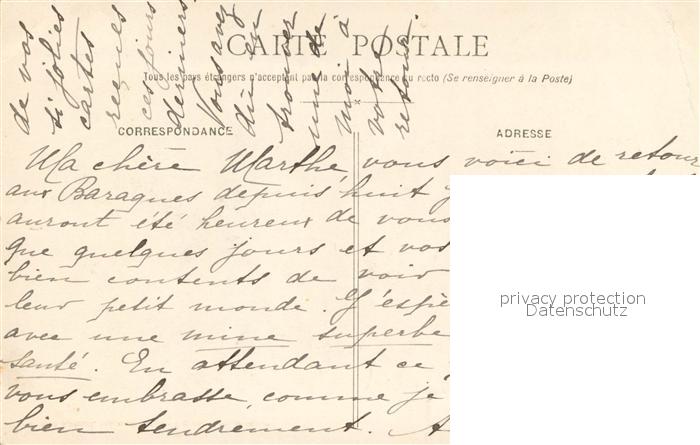 CARTE POSTALE
Tous les pays étrangers n'acceptent pas la correspondance au recto (Se renseigner à la Poste)
CORRESPONDANCE
ADRESSE
Ma chère Marthe, vous voici de retour
aux Baraques depuis huit
auront été heureux de vous
que quelques jours et vos
bien contents de voir
leur petit monde. J'espère
avec une mine superbe
santé. En attendant ce
vous embrasse, comme je
bien tendrement. A
de vos
si jolies
cartes
reçues
ces jours
derniers
Vous avez
dû en
trouver
une de
moi à
votre
retour
privacy protection
Datenschutz